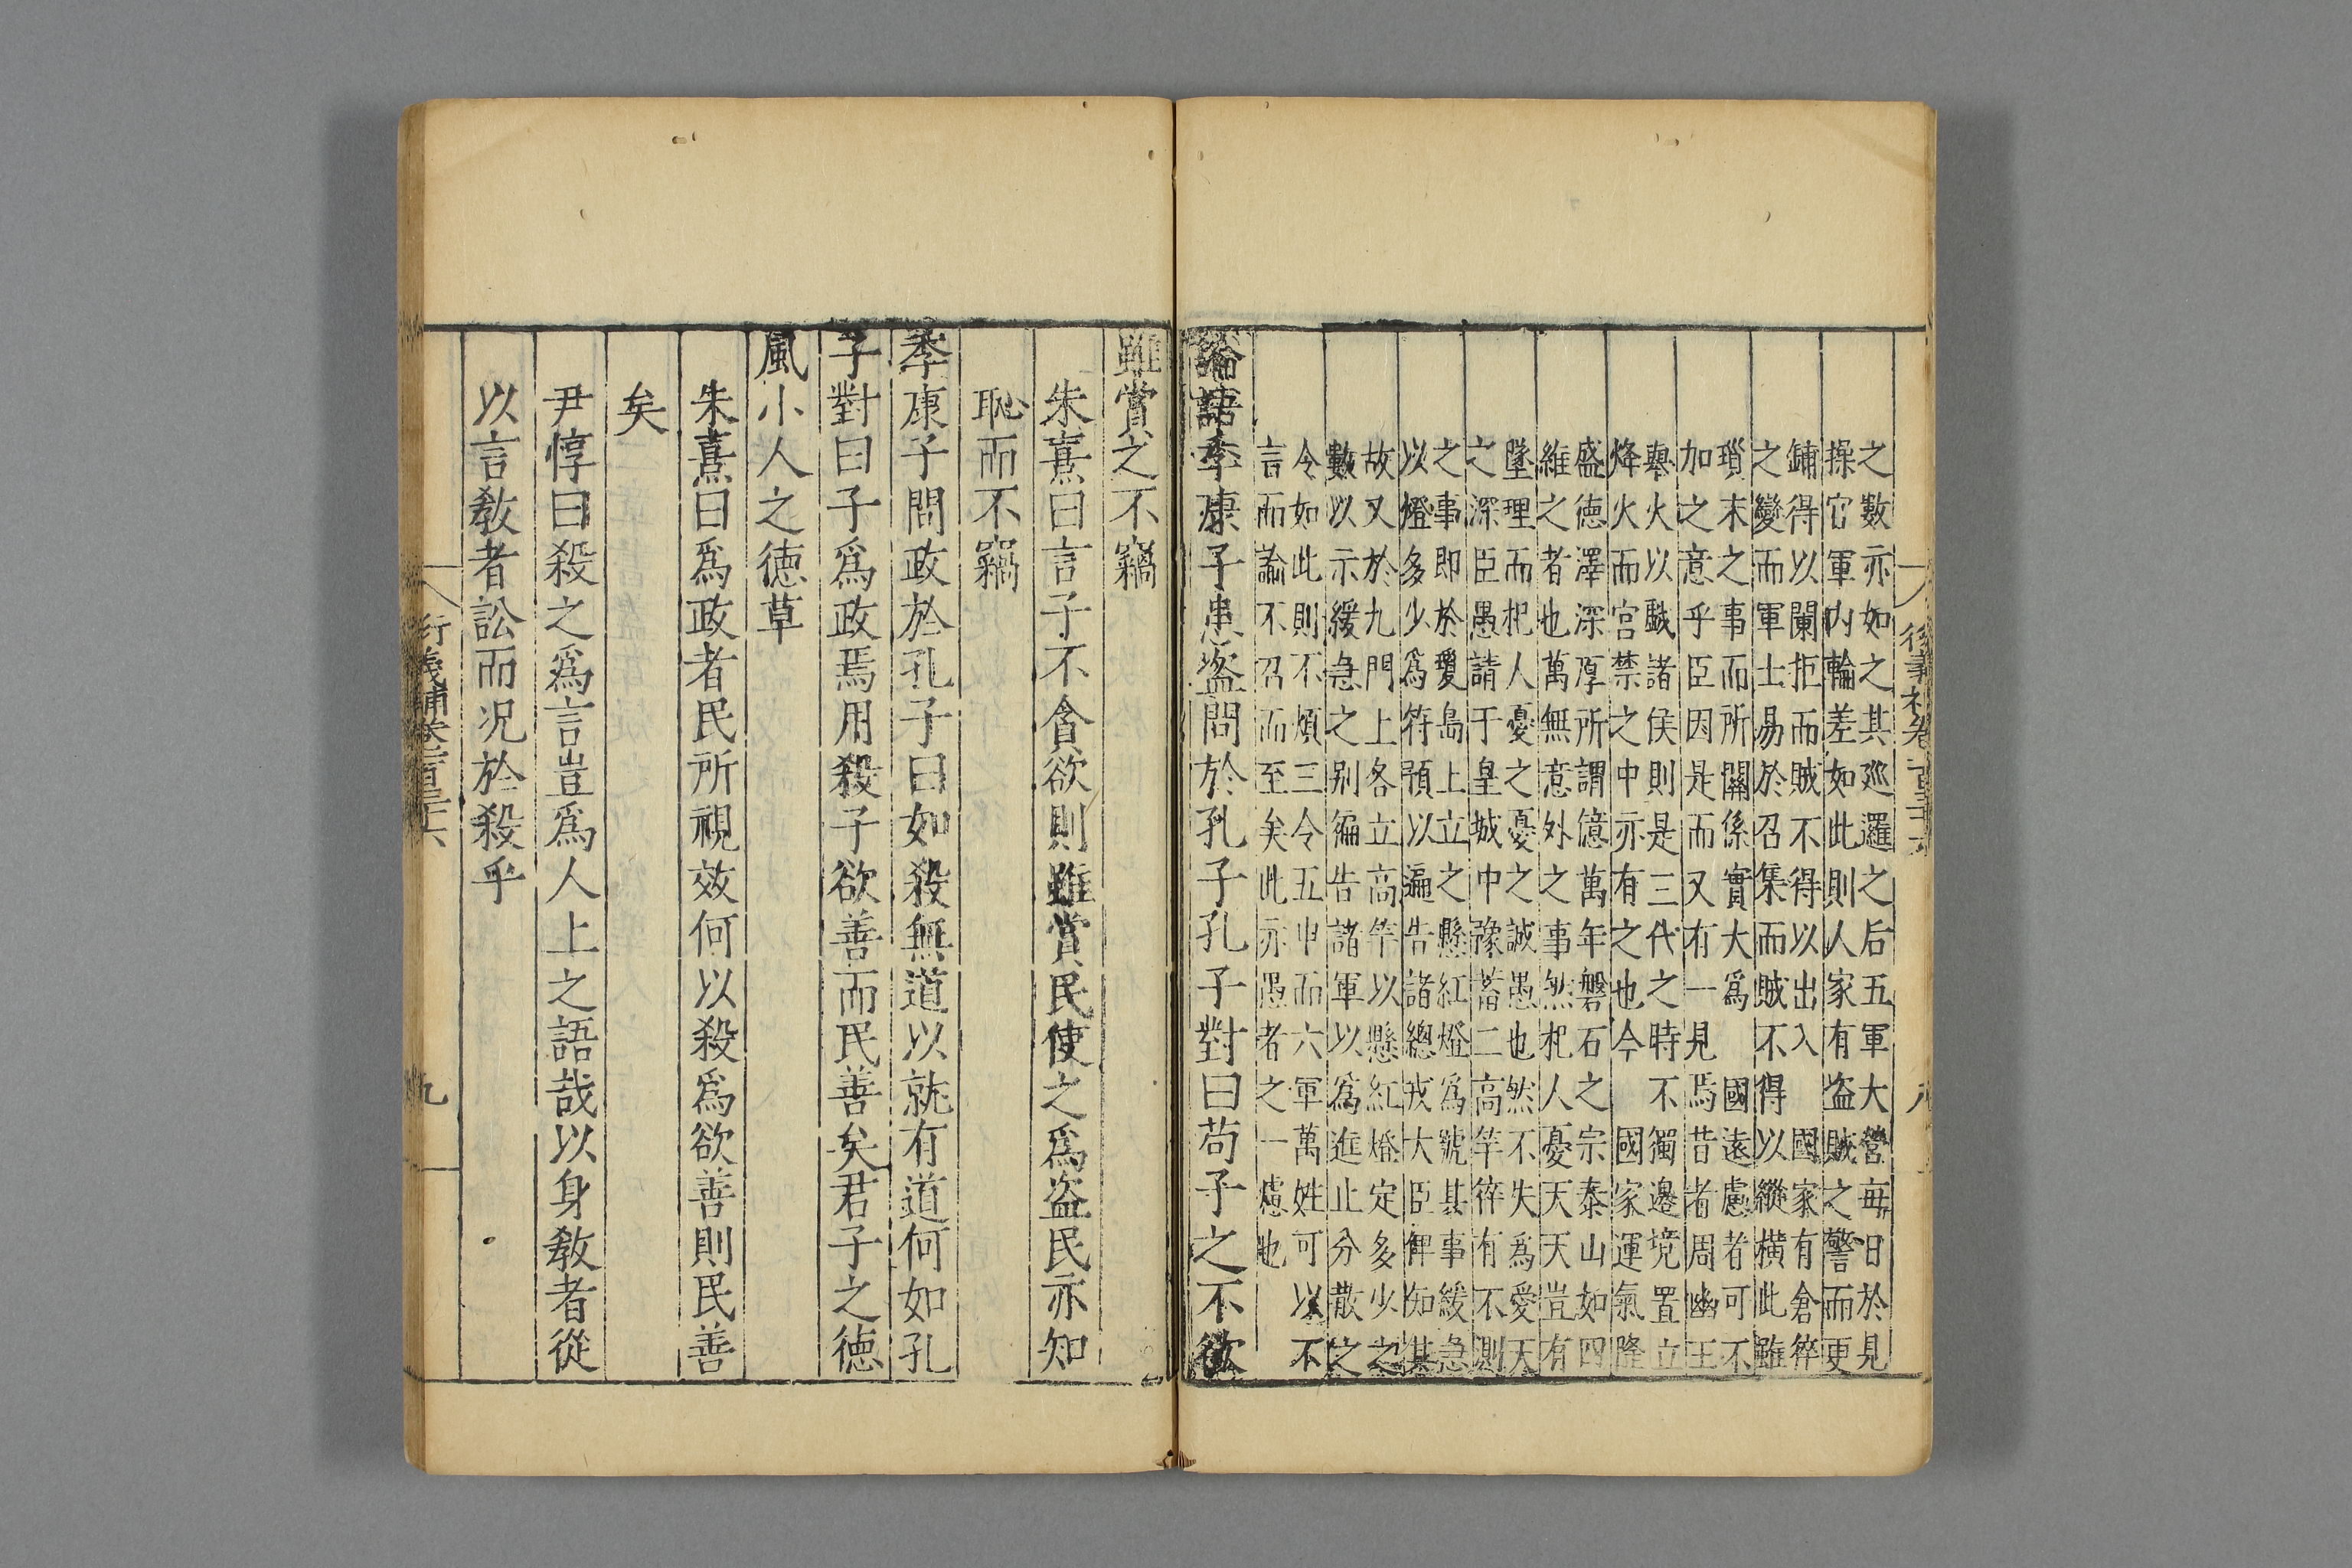 之數亦如之其廵邏之后五軍大營毎日於見
操官軍内輪差如此則人家有盗賊之警而更
鋪得以闌拒而賊不得以出入國家有倉猝
之變而軍士易於召集而賊不得以縱橫此雖
瑣末之事而所關係實大爲國遠慮者可不
加之意乎臣因是而又有一見焉昔者周幽王
舉火以戯諸侯則是三代之時不獨邊境置立
烽火而宮禁之中亦有之也今國家運氣隆
盛徳澤深厚所謂億萬年磐石之宗泰山如四
維之者也萬無意外之事然杞人憂天天豈有
墜理而杞人憂之憂之誠愚也然不失爲愛天
之深臣愚請于皇城中豫蓄二高竿猝有不測
之事即於瓊島上立之懸紅燈爲號其事緩急
以燈多少爲符預以遍告諸總戎大臣俾知其
故又於九門上各立高竿以懸紅燈定多少之
數以示緩急之别徧告諸軍以爲進止分散之
令如此則不煩三令五申而六軍萬姓可以不
言而諭不召而至矣此亦愚者之一慮也
論語季康子患盗問於孔子孔子對曰苟子之不欲
雖賞之不竊
朱熹曰言子不貪欲則雖賞民使之爲盗民亦知
恥而不竊
季康子問政於孔子曰如殺無道以就有道何如孔
子對曰子爲政焉用殺子欲善而民善矣君子之徳
風小人之徳草
朱熹曰爲政者民所視效何以殺爲欲善則民善
矣
尹惇曰殺之爲言豈爲人上之語哉以身教者從
以言教者訟而况於殺乎
衍義補卷一百三十六
九